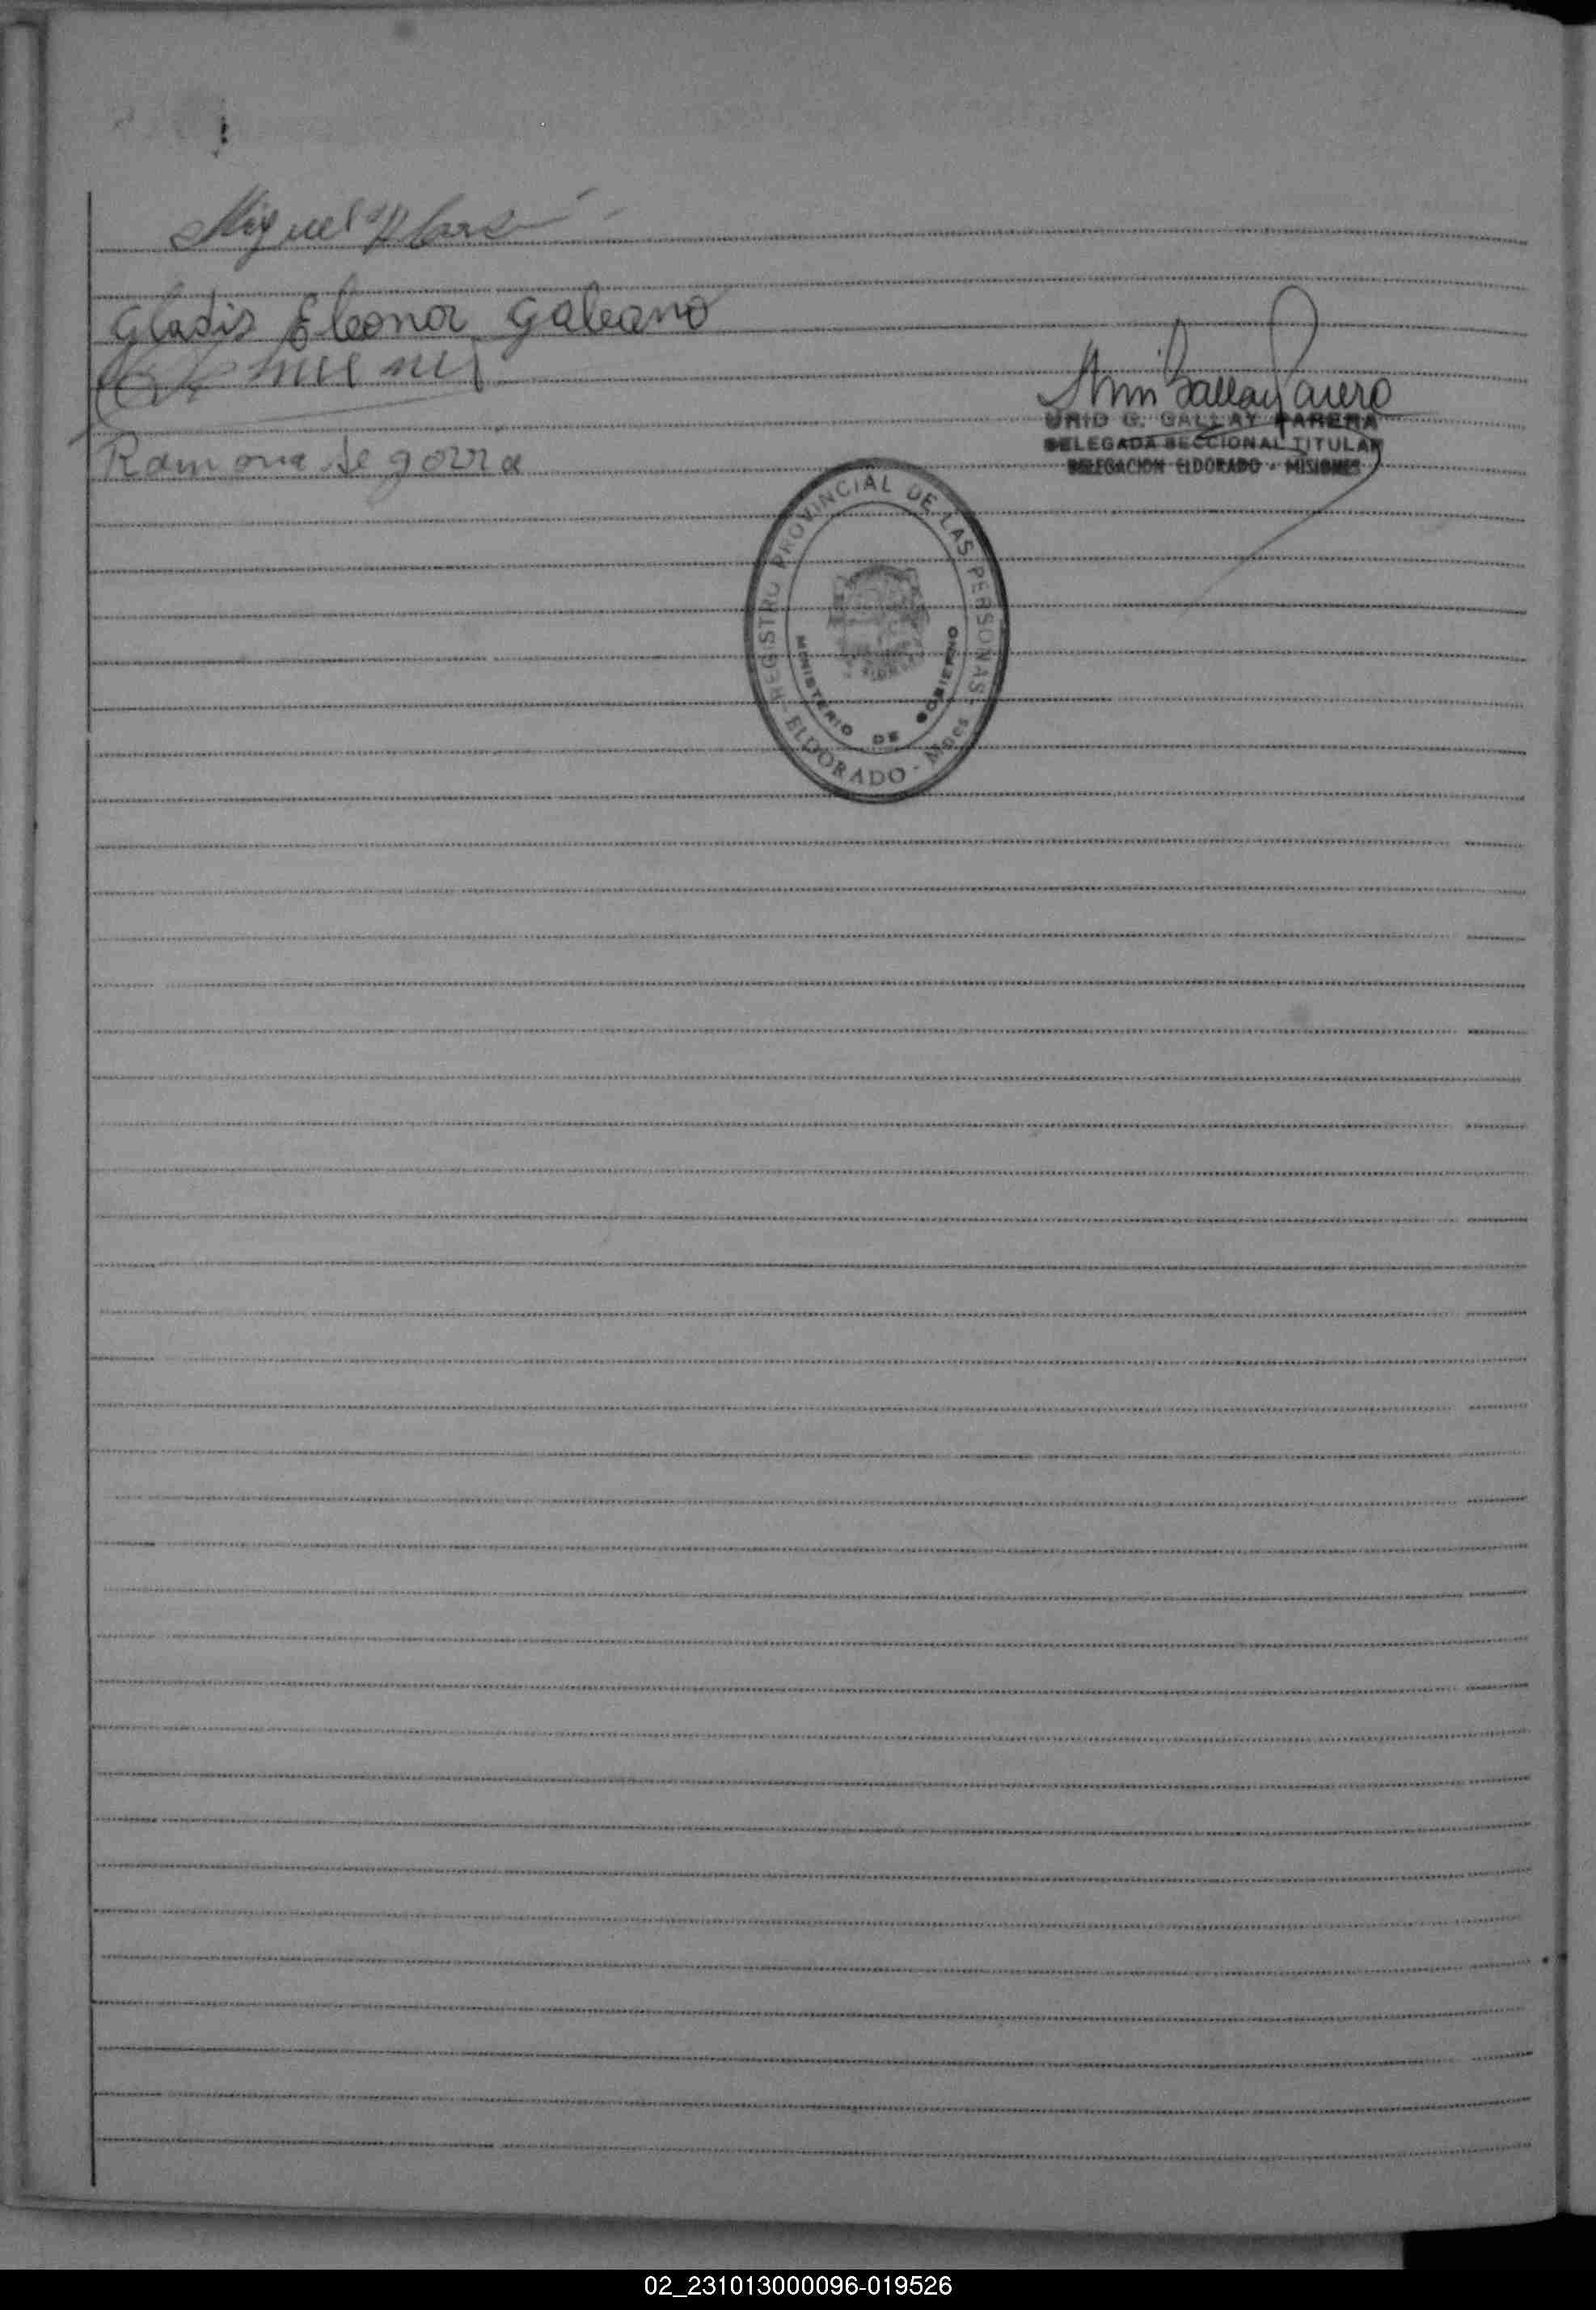 Miguel
Gladis Eleonor Galeano
Ramona Segovia
G. GALLAY PARERA
DELEGADA SECCIONAL TITULAR
DELEGACION ELDORADO - MISIONES
REGISTRO PROVINCIAL DE LAS PERSONAS
MINISTERIO DE GOBIERNO
ELDORADO - Mnes
02_231013000096-019526